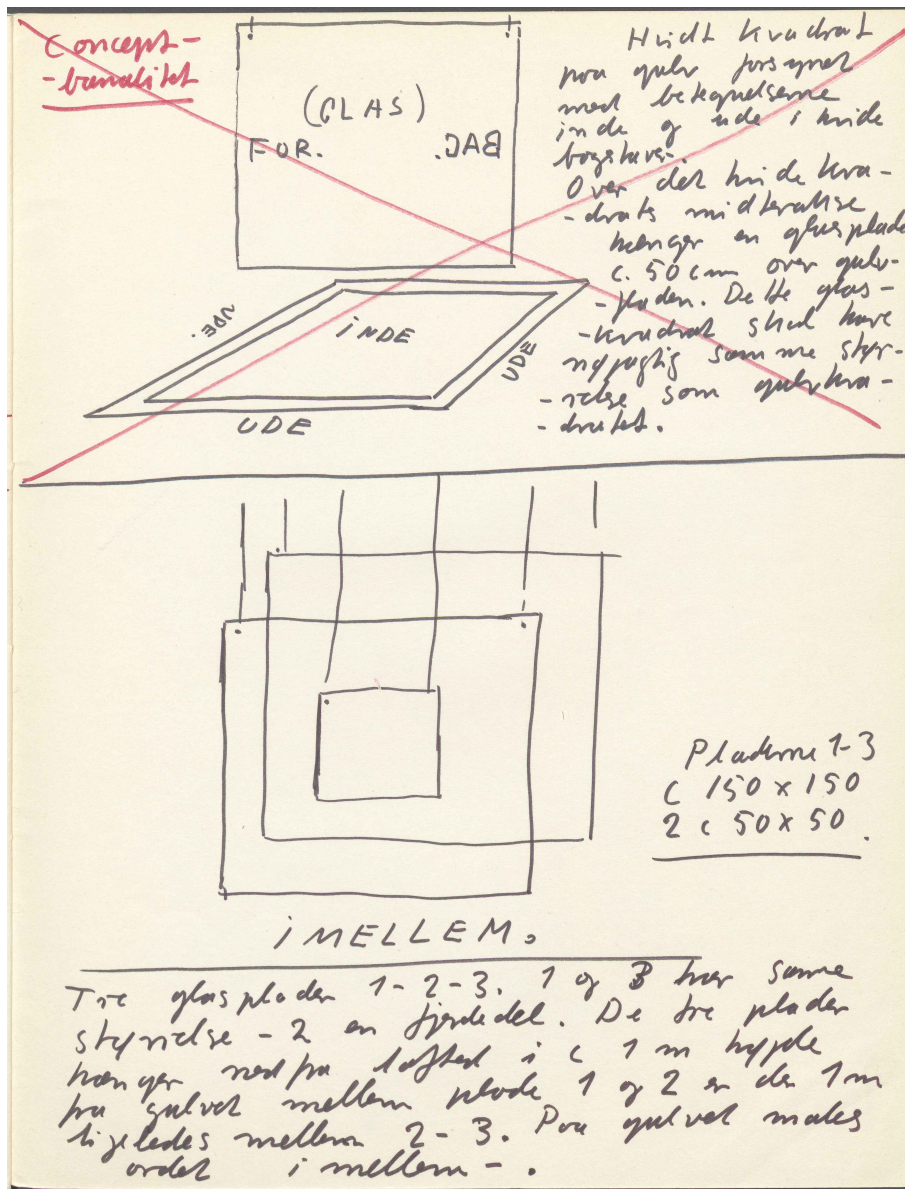 Concept-
-banalitet
(GLAS)
FOR. BAG.
Hvidt kvadrat
paa gulv forsynet
med betegnelserne
inde og ude i hvide
bogstaver.
Over det hvide kva-
-drats midterakse
hænger en glasplade
c. 50 cm over gulv-
-pladen. Dette glas-
-kvadrat skal have
nøjagtig samme stør-
-relse som gulvkva-
-dratet.
UDE
INDE
UDE
UDE
Pladerne 1-3
c 150 x 150
2 c 50 x 50.
iMELLEM.
Tre glasplader 1-2-3. 1 og 3 har samme
størrelse - 2 en fjerdedel. De tre plader
hænger ned fra lofted i c 1 m højde
fra gulvet mellem plade 1 og 2 er der 1 m
ligeledes mellem 2-3. Paa gulvet males
ordet i mellem - .